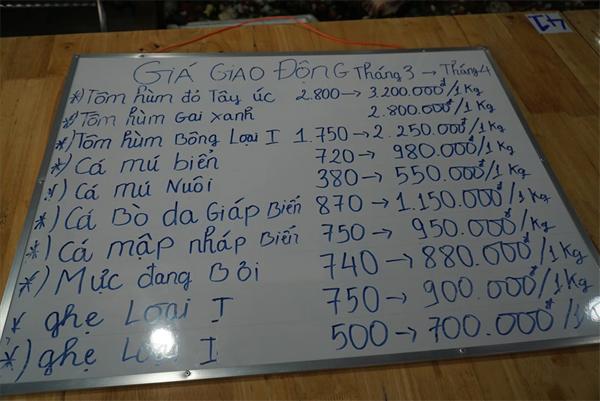 GIÁ GIAO ĐỘNG Tháng 3 → Tháng 4
*) Tôm hùm đỏ Tây úc 2.800 → 3.200.000đ/1 Kg
*) Tôm hùm Gai xanh 2.800.000đ/1 Kg
*) Tôm hùm Bông Loại I 1.750 → 2.250.000đ/1 Kg
*) Cá mú biển 720 → 980.000đ/1 Kg
*) Cá mú Nuôi 380 → 550.000đ/1 Kg
*) Cá Bò da Giáp Biển 870 → 1.150.000đ/1 Kg
*) Cá mập nháp Biển 750 → 950.000đ/1 Kg
*) Mực đang Bơi 740 → 880.000đ/1 Kg
* ghẹ Loại I 750 → 900.000đ/1 Kg
*) ghẹ Loại I 500 → 700.000đ/1